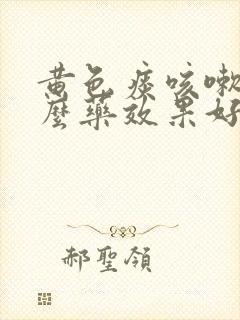 黄色痰咳嗽
麼藥效果好
郝聖領